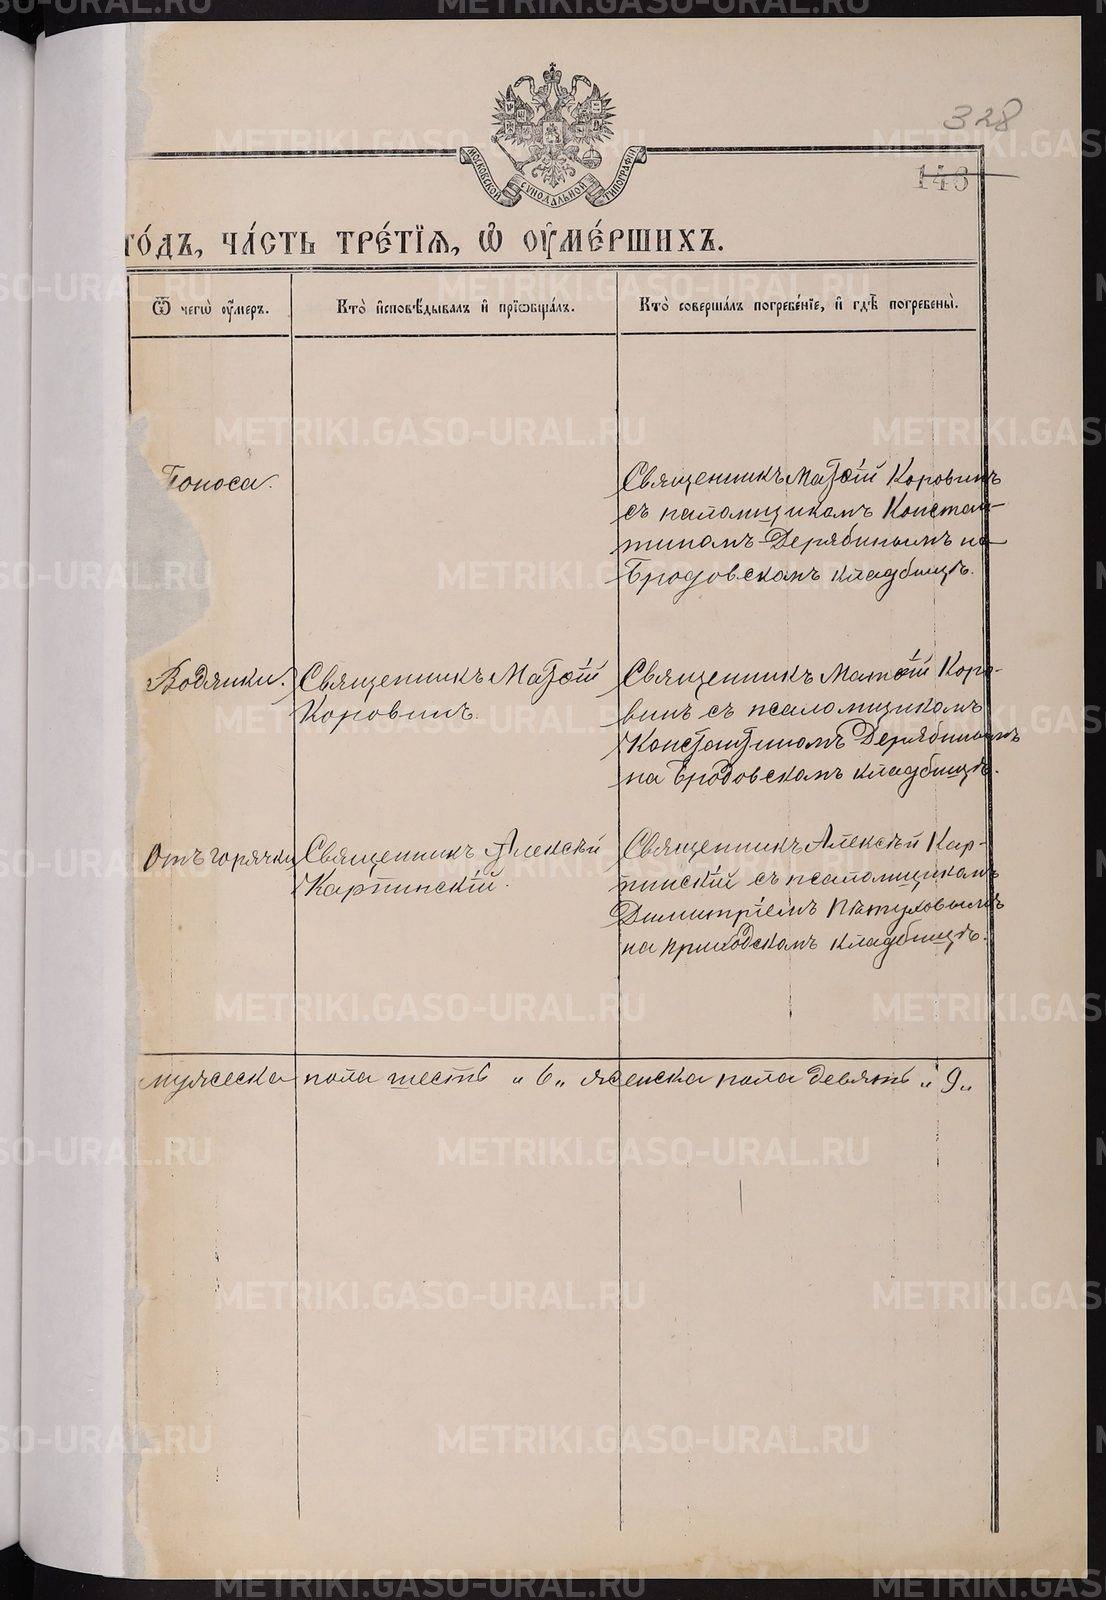 328
146
МОСКОВСКОЙ СѴНОДАЛЬНОЙ ТИПОГРАФІИ
го́дъ, ча́сть тре́тїѧ, ѡ҆ оу҆ме́ршихъ.
Ѿ чегѡ̀ оу҆́меръ.
Кто̀ и҆сповѣ́дывалъ и҆ прїѡбща́лъ.
Кто̀ соверша́лъ погребе́нїе, и҆ гдѣ̀ погребены̀.
Поноса.
Священникъ Матѳій Коровинъ
съ псаломщикомъ Констан-
тиномъ Дерябинымъ на
Бродовскомъ кладбищѣ.
Водянки.
Священникъ Матѳій
Коровинъ.
Священникъ Матѳій Коро-
винъ съ псаломщикомъ
Константиномъ Дерябинымъ
на Бродовскомъ кладбищѣ.
Отъ горячки
Священникъ Алексѣй
Карпинскій.
Священникъ Алексѣй Кар-
пинскій съ псаломщикомъ
Димитріемъ Пѣтуховымъ
на приходскомъ кладбищѣ.
мужеска пола шесть „6„ женска пола девять „9„
METRIKI.GASO-URAL.RU